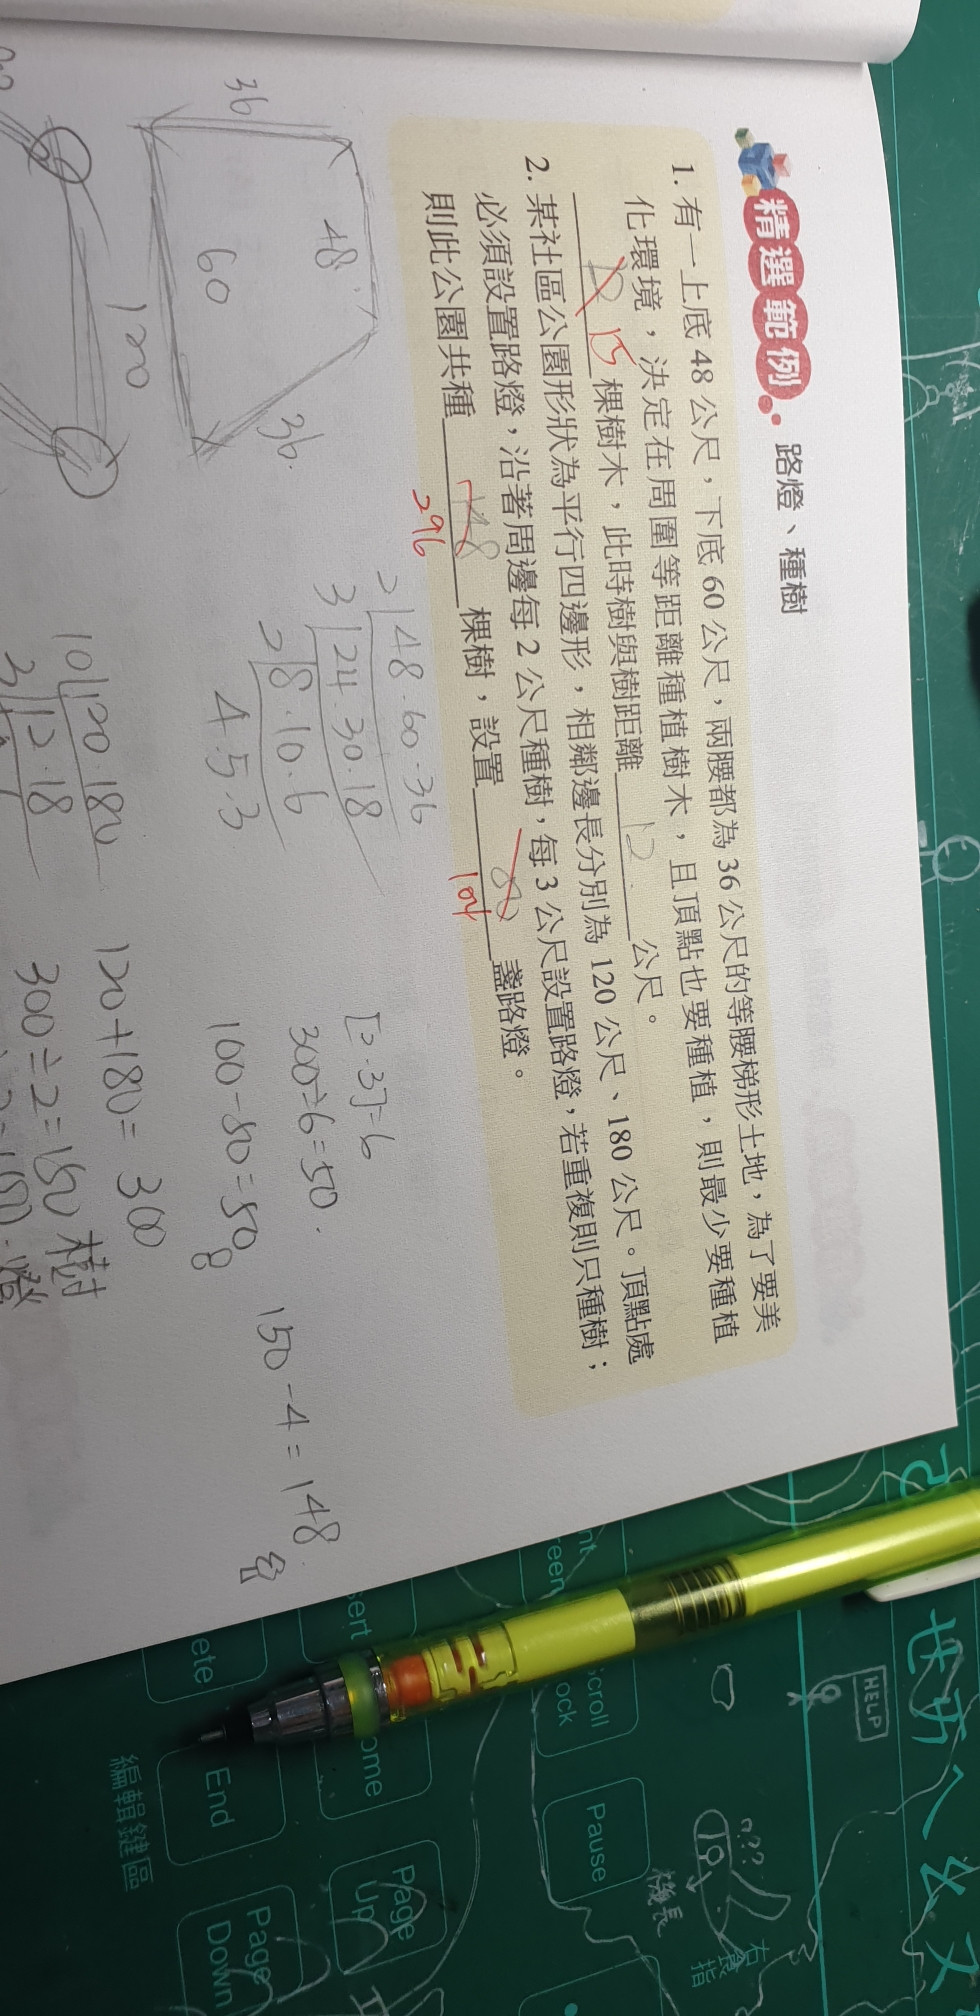 精選範例 路燈、種樹
1. 有一上底 48 公尺，下底 60 公尺，兩腰都為 36 公尺的等腰梯形土地，為了要美
化環境，決定在周圍等距離種植樹木，且頂點也要種植，則最少要種植
15 棵樹木，此時樹與樹距離 12 公尺。
2. 某社區公園形狀為平行四邊形，相鄰邊長分別為 120 公尺、180 公尺。頂點處
必須設置路燈，沿著周邊每 2 公尺種樹，每 3 公尺設置路燈，若重複則只種樹；
則此公園共種 148 棵樹，設置 80 盞路燈。
296
104
36
48
60
36
120
2 48.60.36
3 24.30.18
2 8.10.6
4.5.3
[2.3]=6
300÷6=50.
100-50=50
8
150-4=148
10 120.180
12.18
120+180=300
300÷2=150 樹
燈
HELP
???
Scroll
Pause
End
Page
Up
Page
Down
編輯鍵區